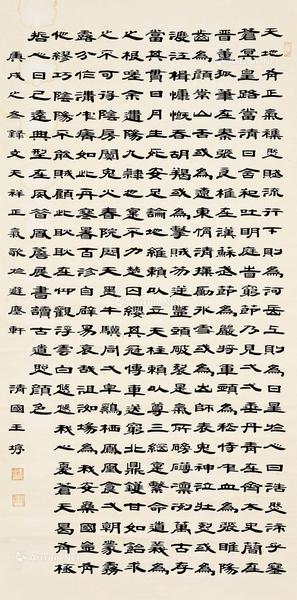 天地有正氣雜然賦流行下則為河岳上則為日星於人曰浩然沛乎塞
蒼冥皇路當清夷含和吐明庭時窮節乃見一一垂丹青在齊太史簡在
晉董狐筆在秦張良椎在漢蘇武節為嚴將軍頭為嵇侍中血為張睢陽
齒為顏常山舌或為遼東帽清操厲冰雪或為出師表鬼神泣壯烈或為
渡江楫慷慨吞胡羯或為擊賊笏逆豎頭破裂是氣所磅礴凜烈萬古存
當其貫日月生死安足論地維賴以立天柱賴以尊三綱實繫命道義為
之根嗟余遘陽九隸也實不力楚囚纓其冠傳車送窮北鼎鑊甘如飴求
之不可得陰房闃鬼火春院閟天黑牛驥同一皂雞棲鳳凰食一朝蒙霧
露分作溝中瘠如此再寒暑百沴自辟易哀哉沮洳場為我安樂國豈有
他繆巧陰陽不能賊顧此耿耿在仰視浮雲白悠悠我心憂蒼天曷有極
哲人日已遠典型在夙昔風簷展書讀古道照顏色
庚戌之冬錄文天祥正氣歌於避塵軒 清國王